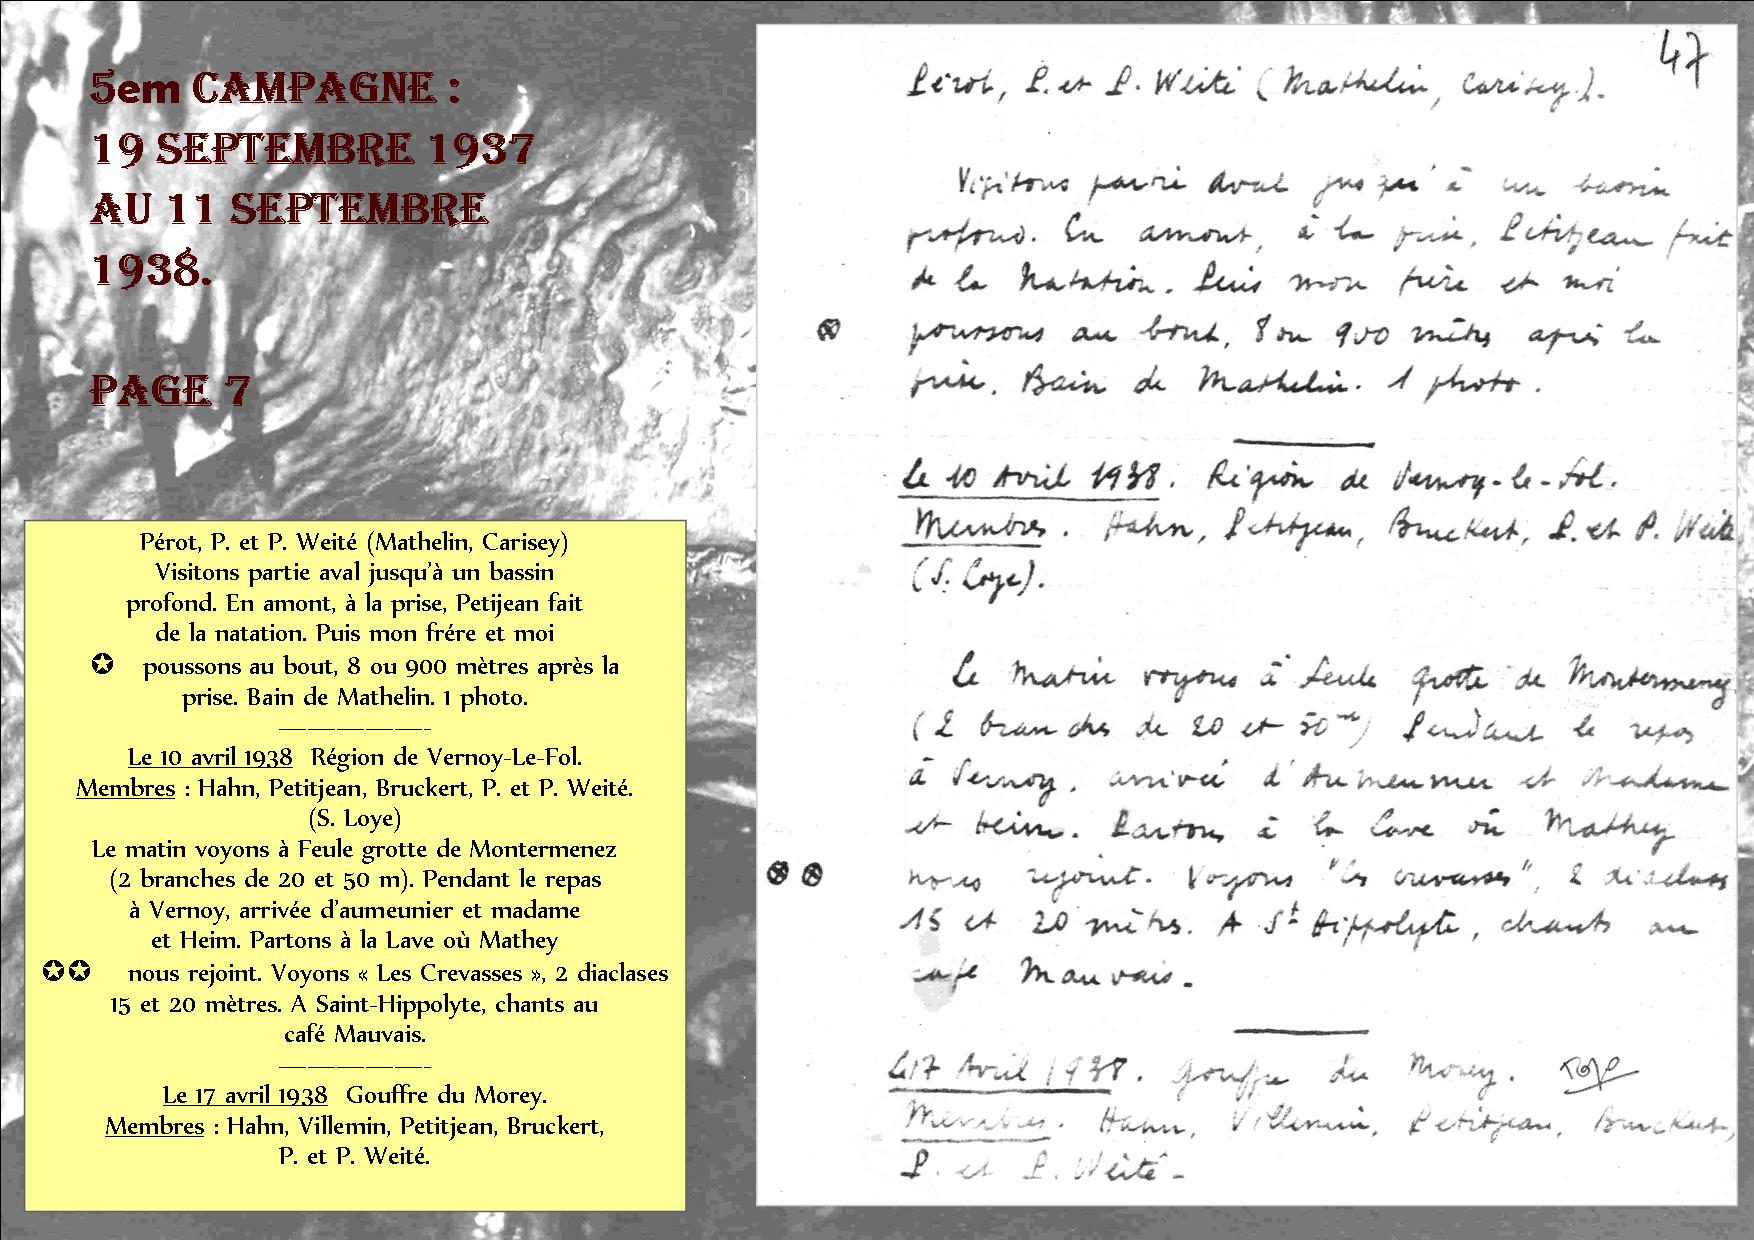 5em CAMPAGNE :
19 SEPTEMBRE 1937
AU 11 SEPTEMBRE
1938.
PAGE 7
Pérot, P. et P. Weité (Mathelin, Carisey)
Visitons partie aval jusqu'à un bassin
profond. En amont, à la prise, Petijean fait
de la natation. Puis mon frére et moi
✪ poussons au bout, 8 ou 900 mètres après la
prise. Bain de Mathelin. 1 photo.
Le 10 avril 1938 Région de Vernoy-Le-Fol.
Membres : Hahn, Petitjean, Bruckert, P. et P. Weité.
(S. Loye)
Le matin voyons à Feule grotte de Montermenez
(2 branches de 20 et 50 m). Pendant le repas
à Vernoy, arrivée d'aumeunier et madame
et Heim. Partons à la Lave où Mathey
✪✪ nous rejoint. Voyons « Les Crevasses », 2 diaclases
15 et 20 mètres. A Saint-Hippolyte, chants au
café Mauvais.
Le 17 avril 1938 Gouffre du Morey.
Membres : Hahn, Villemin, Petitjean, Bruckert,
P. et P. Weité.
47
Pérot, P. et P. Weité (Mathelin, Carisey).
Visitons partie aval jusqu'à un bassin
profond. En amont, à la prise, Petitjean fait
de la natation. Puis mon frère et moi
poussons au bout, 8 ou 900 mètres après la
prise. Bain de Mathelin. 1 photo.
Le 10 Avril 1938. Région de Vernoy-le-Fol.
Membres. Hahn, Petitjean, Bruckert, P. et P. Weité
(S. Loye).
Le matin voyons à Feule grotte de Montermenez
(2 branches de 20 et 50 m) Pendant le repas
à Vernoy, arrivée d'Aumeunier et Madame
et Heim. Partons à la Lave où Mathey
nous rejoint. Voyons "les crevasses", 2 diaclases
15 et 20 mètres. A St Hippolyte, chants au
café Mauvais.
Le 17 Avril 1938. Gouffre du Morey.
Membres. Hahn, Villemin, Petitjean, Bruckert,
P. et P. Weité.